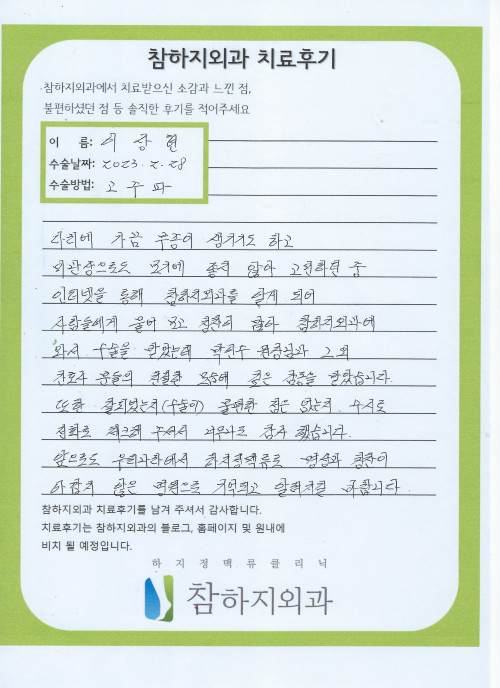 참하지외과 치료후기
참하지외과에서 치료받으신 소감과 느낀 점,
불편하셨던 점 등 솔직한 후기를 적어주세요
이 름: 이 상 현
수술날짜: 2023. 2. 28
수술방법: 고 주 파
다리에 가끔 부종이 생기기도 하고
외관상으로도 보기에 좋지 않아 고민하던 중
인터넷을 통해 참하지외과를 알게 되어
사람들에게 물어 보고 칭찬이 많아 참하지외과에
와서 수술을 받았는데 박인수 원장님과 그외
간호사 분들의 친절한 모습에 깊은 감동을 받았습니다.
또한 잘되었는지(수술이) 불편한 점은 없는지 수시로
전화로 체크해 주셔서 너무나도 감사 했습니다.
앞으로도 우리나라에서 하지정맥류로 명성과 칭찬이
아깝지 않은 병원으로 기억되고 알려지길 바랍니다.
참하지외과 치료후기를 남겨 주셔서 감사합니다.
치료후기는 참하지외과의 블로그, 홈페이지 및 원내에
비치 될 예정입니다.
하지정맥류클리닉
참하지외과